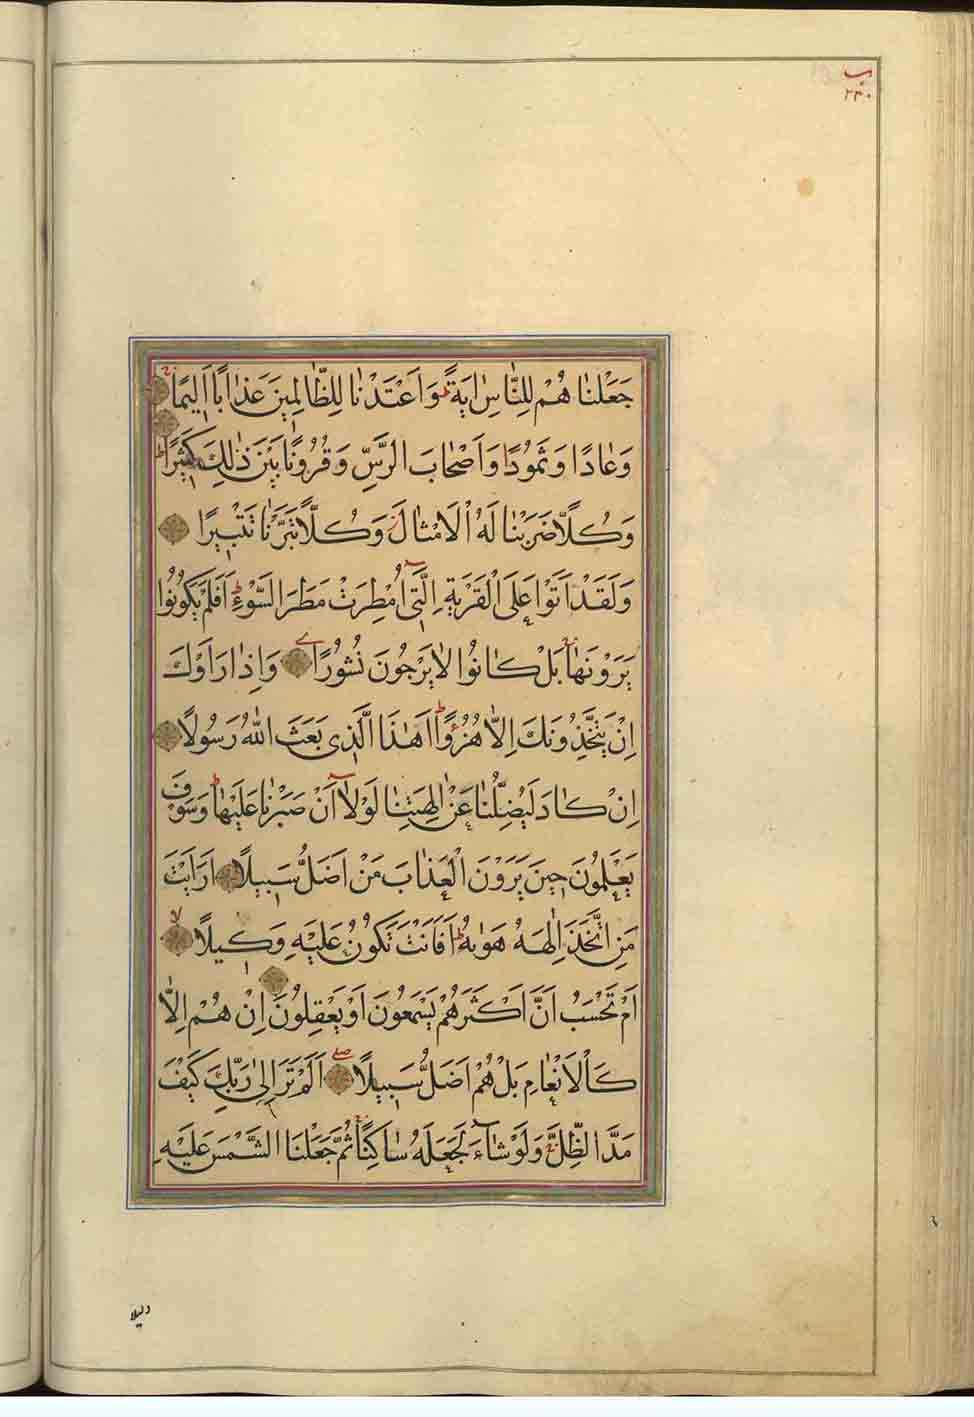 ب
۲۳۰
جَعَلْنٰا هُمْ لِلنّٰاسِ اٰیَةً وَاَعْتَدْنٰا لِلظّٰالِمینَ عَذٰابًا اَلیمًا
وَعٰادًا وَثَمُودًا وَاَصْحٰابَ الرَّسِّ وَقُرُونًا بَیْنَ ذٰلِكَ كَثیرًا
وَكُلًّا ضَرَبْنٰا لَهُ الْاَمْثٰالَ وَكُلًّا تَبَّرْنٰا تَتْبیرًا
وَلَقَدْ اَتَوْا عَلَی الْقَرْیَةِ الَّتٖی اُمْطِرَتْ مَطَرَ السَّوْءِ اَفَلَمْ یَكُونُوا
یَرَوْنَهٰا بَلْ كٰانُوا لٰا یَرْجُونَ نُشُورًا وَاِذٰا رَاَوْكَ
اِنْ یَتَّخِذُونَكَ اِلّٰا هُزُؤًا اَهٰذَا الَّذٖی بَعَثَ اللّٰهُ رَسُولًا
اِنْ كٰادَ لَیُضِلُّنٰا عَنْ اٰلِهَتِنٰا لَوْلٰا اَنْ صَبَرْنٰا عَلَیْهٰا وَسَوْفَ
یَعْلَمُونَ حٖینَ یَرَوْنَ الْعَذٰابَ مَنْ اَضَلُّ سَبیلًا اَرَاَیْتَ
مَنِ اتَّخَذَ اِلٰهَهُ هَوٰیهُ اَفَاَنْتَ تَكُونُ عَلَیْهِ وَكیلًا
اَمْ تَحْسَبُ اَنَّ اَكْثَرَهُمْ یَسْمَعُونَ اَوْ یَعْقِلُونَ اِنْ هُمْ اِلّٰا
كَالْاَنْعٰامِ بَلْ هُمْ اَضَلُّ سَبیلًا اَلَمْ تَرَ اِلٰی رَبِّكَ كَیْفَ
مَدَّ الظِّلَّ وَلَوْ شٰاءَ لَجَعَلَهُ سٰاكِنًا ثُمَّ جَعَلْنَا الشَّمْسَ عَلَیْهِ
دلیلا